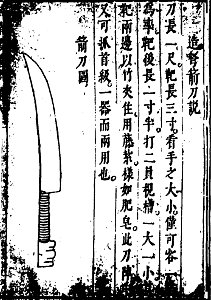 一造弩箭刀説
刀長一尺靶長三寸看手之大小僅可容一
為率靶後長一寸半打二眼視槽一大一小
靶兩邊以竹夾住用藤紮樣如肥皂此刀陣
又可派首級一器而兩用也
箭刀圖